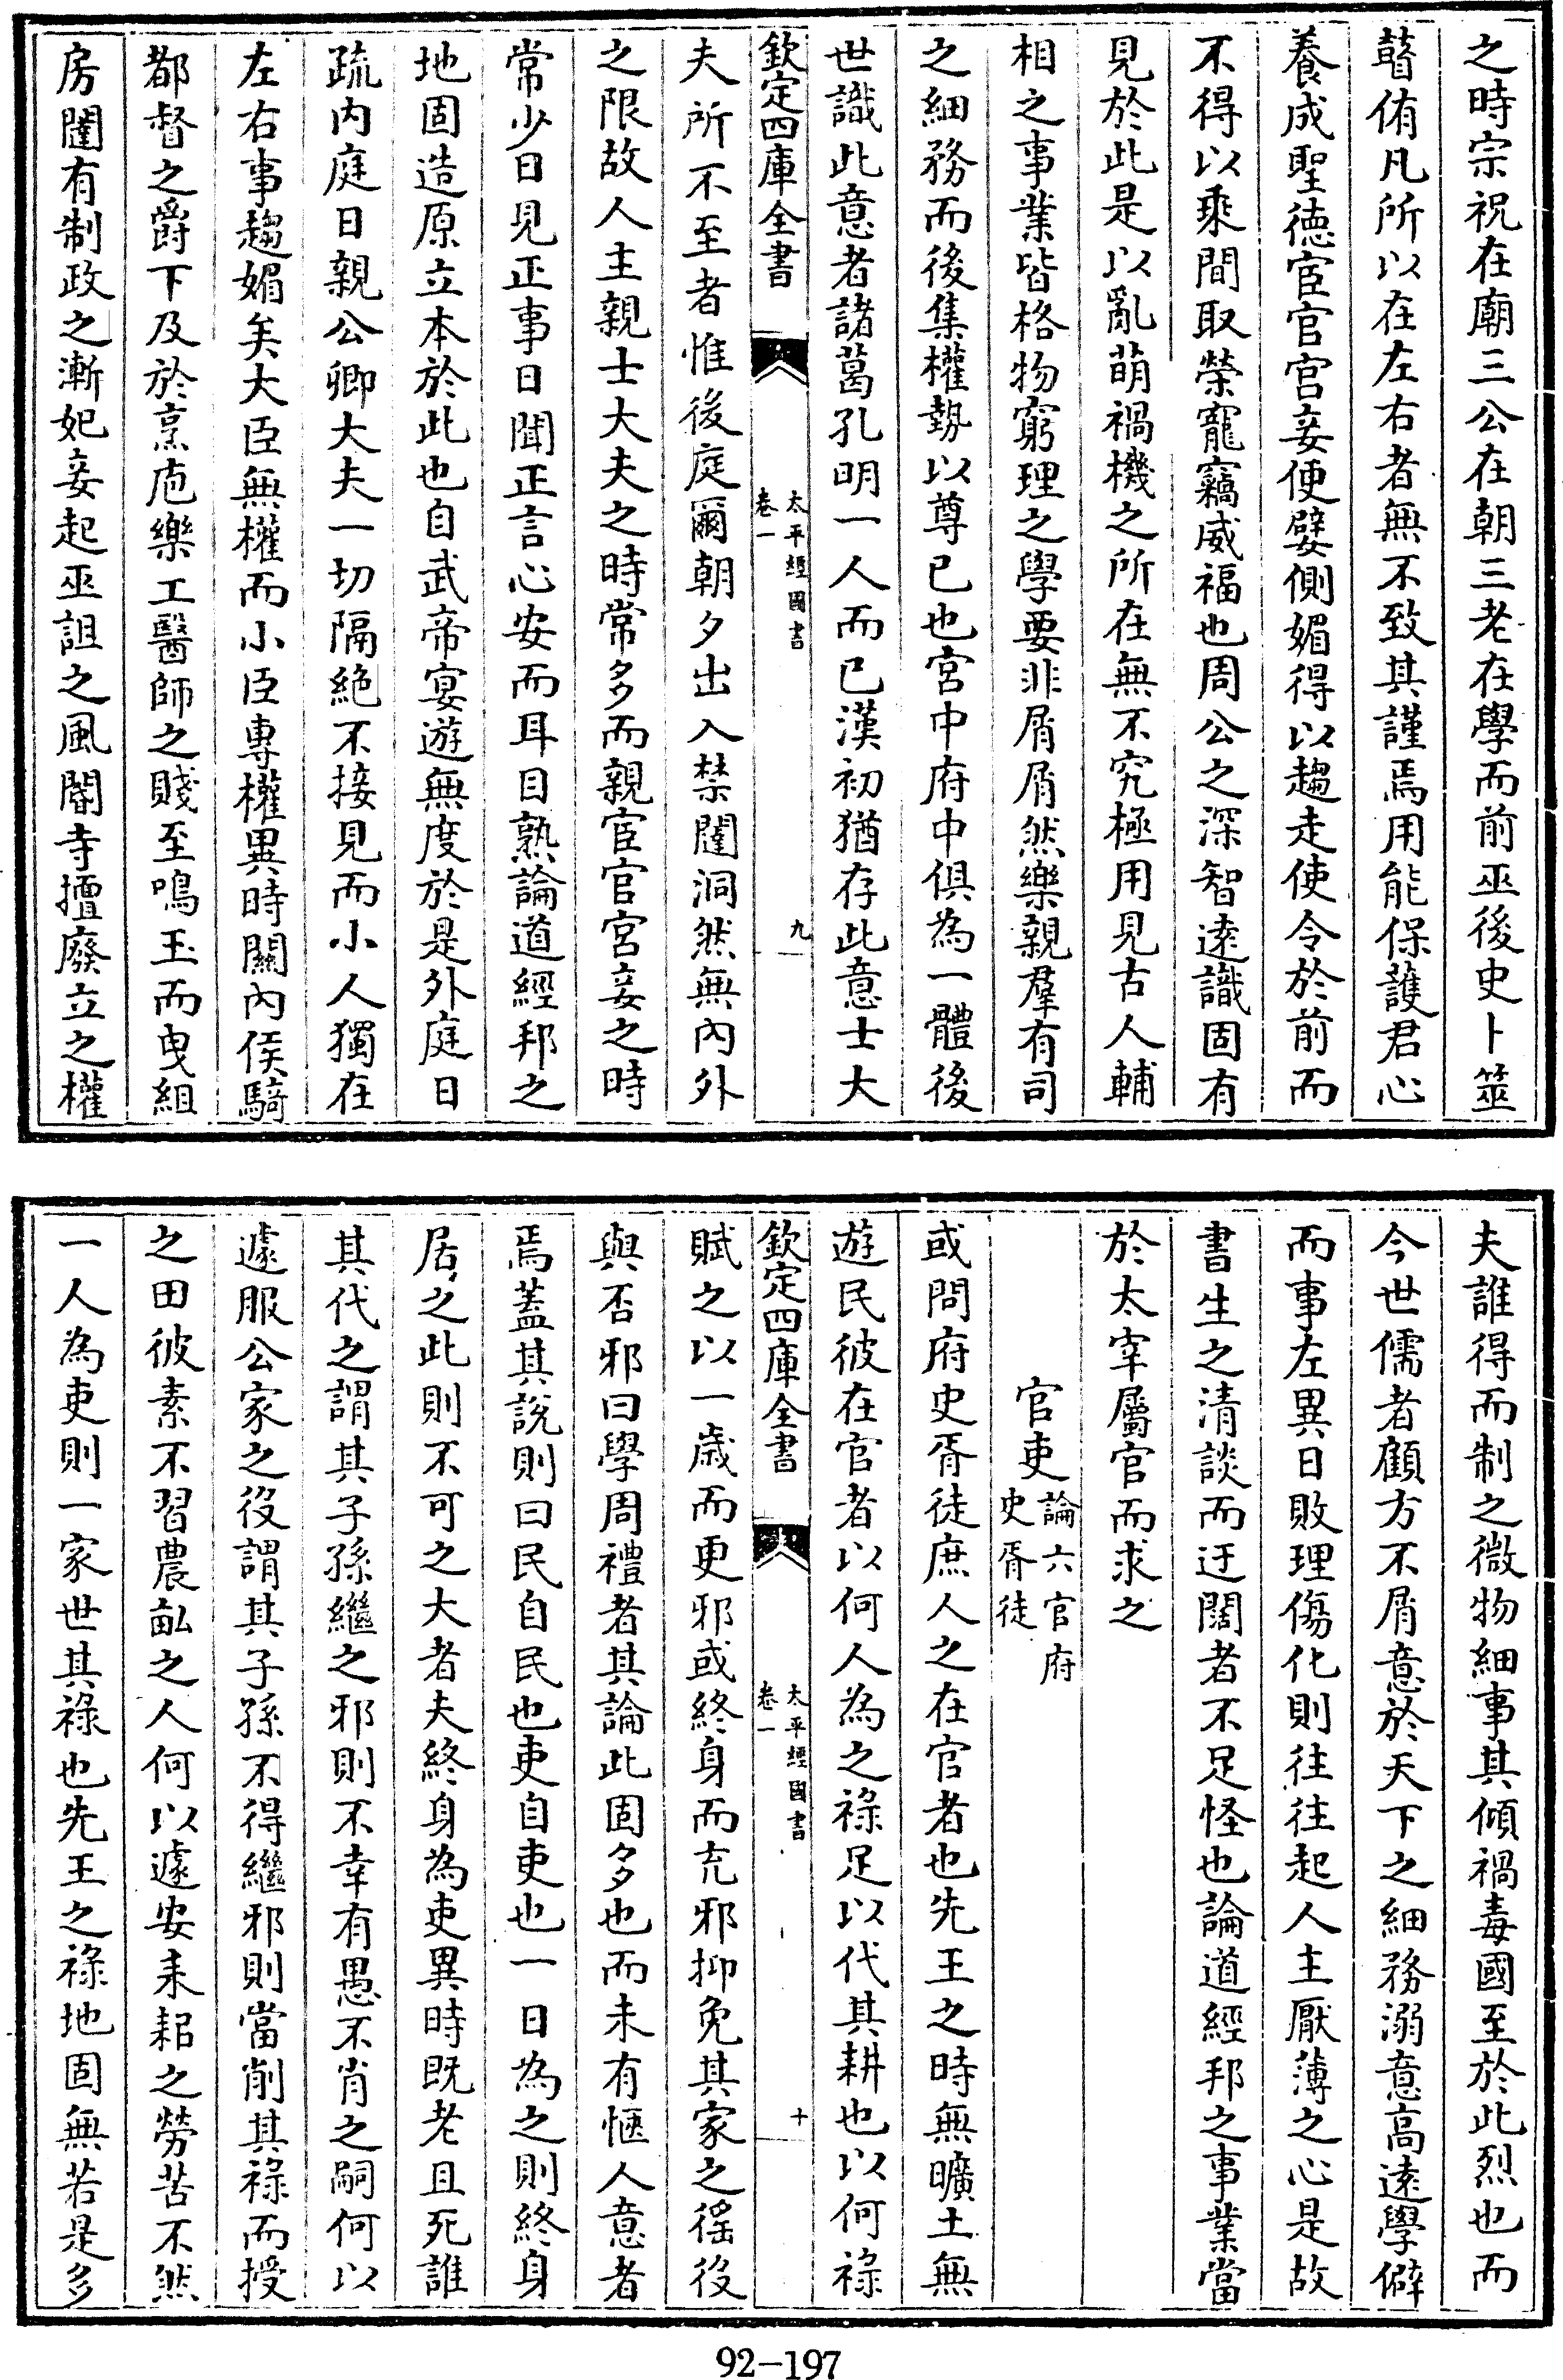 之時宗祝在廟三公在朝三老在學而前巫後史卜筮
瞽侑凡所以在左右者無不致其謹焉用能保護君心
養成聖德宦官宫妾便嬖側媚得以趨走使令於前而
不得以乘間取榮寵竊威福也周公之深智遠識固有
見於此是以亂萌禍機之所在無不究極用見古人輔
相之事業皆格物窮理之學要非屑屑然樂親羣有司
之細務而後集權勢以尊已也宫中府中俱為一體後
世識此意者諸葛孔明一人而已漢初猶存此意士大
欽定四庫全書
太平經國書
卷一
九
夫所不至者惟後庭爾朝夕出入禁闥洞然無內外
之限故人主親士大夫之時常多而親宦官宫妾之時
常少日見正事日聞正言心安而耳目熟論道經邦之
地固造原立本於此也自武帝宴遊無度於是外庭日
疏内庭日親公卿大夫一切隔絶不接見而小人獨在
左右事趨媚矣大臣無權而小臣專權異時關內侯騎
都督之爵下及於烹庖樂工醫師之賤至鳴玉而曳組
房闥有制政之漸妃妾起巫詛之風閽寺擅廢立之權
夫誰得而制之微物細事其傾禍毒國至於此烈也而
今世儒者顧方不屑意於天下之細務溺意高遠學僻
而事左異日敗理傷化則往往起人主厭薄之心是故
書生之清談而迂闊者不足怪也論道經邦之事業當
於太宰屬官而求之
官吏論六官府史胥徒
或問府史胥徒庶人之在官者也先王之時無曠土無
遊民彼在官者以何人為之祿足以代其耕也以何祿
欽定四庫全書
太平經國書
卷一
十
賦之以一歳而更邪或終身而充邪抑免其家之徭役
與否邪曰學周禮者其論此固多也而未有愜人意者
焉蓋其説則曰民自民也吏自吏也一日為之則終身
居之此則不可之大者夫終身為吏異時既老且死誰
其代之謂其子孫繼之邪則不幸有愚不肖之嗣何以
遽服公家之役謂其子孫不得繼邪則當削其祿而授
之田彼素不習農畝之人何以遽安耒耜之勞苦不然
一人為吏則一家世其祿也先王之祿地固無若是多
92-197